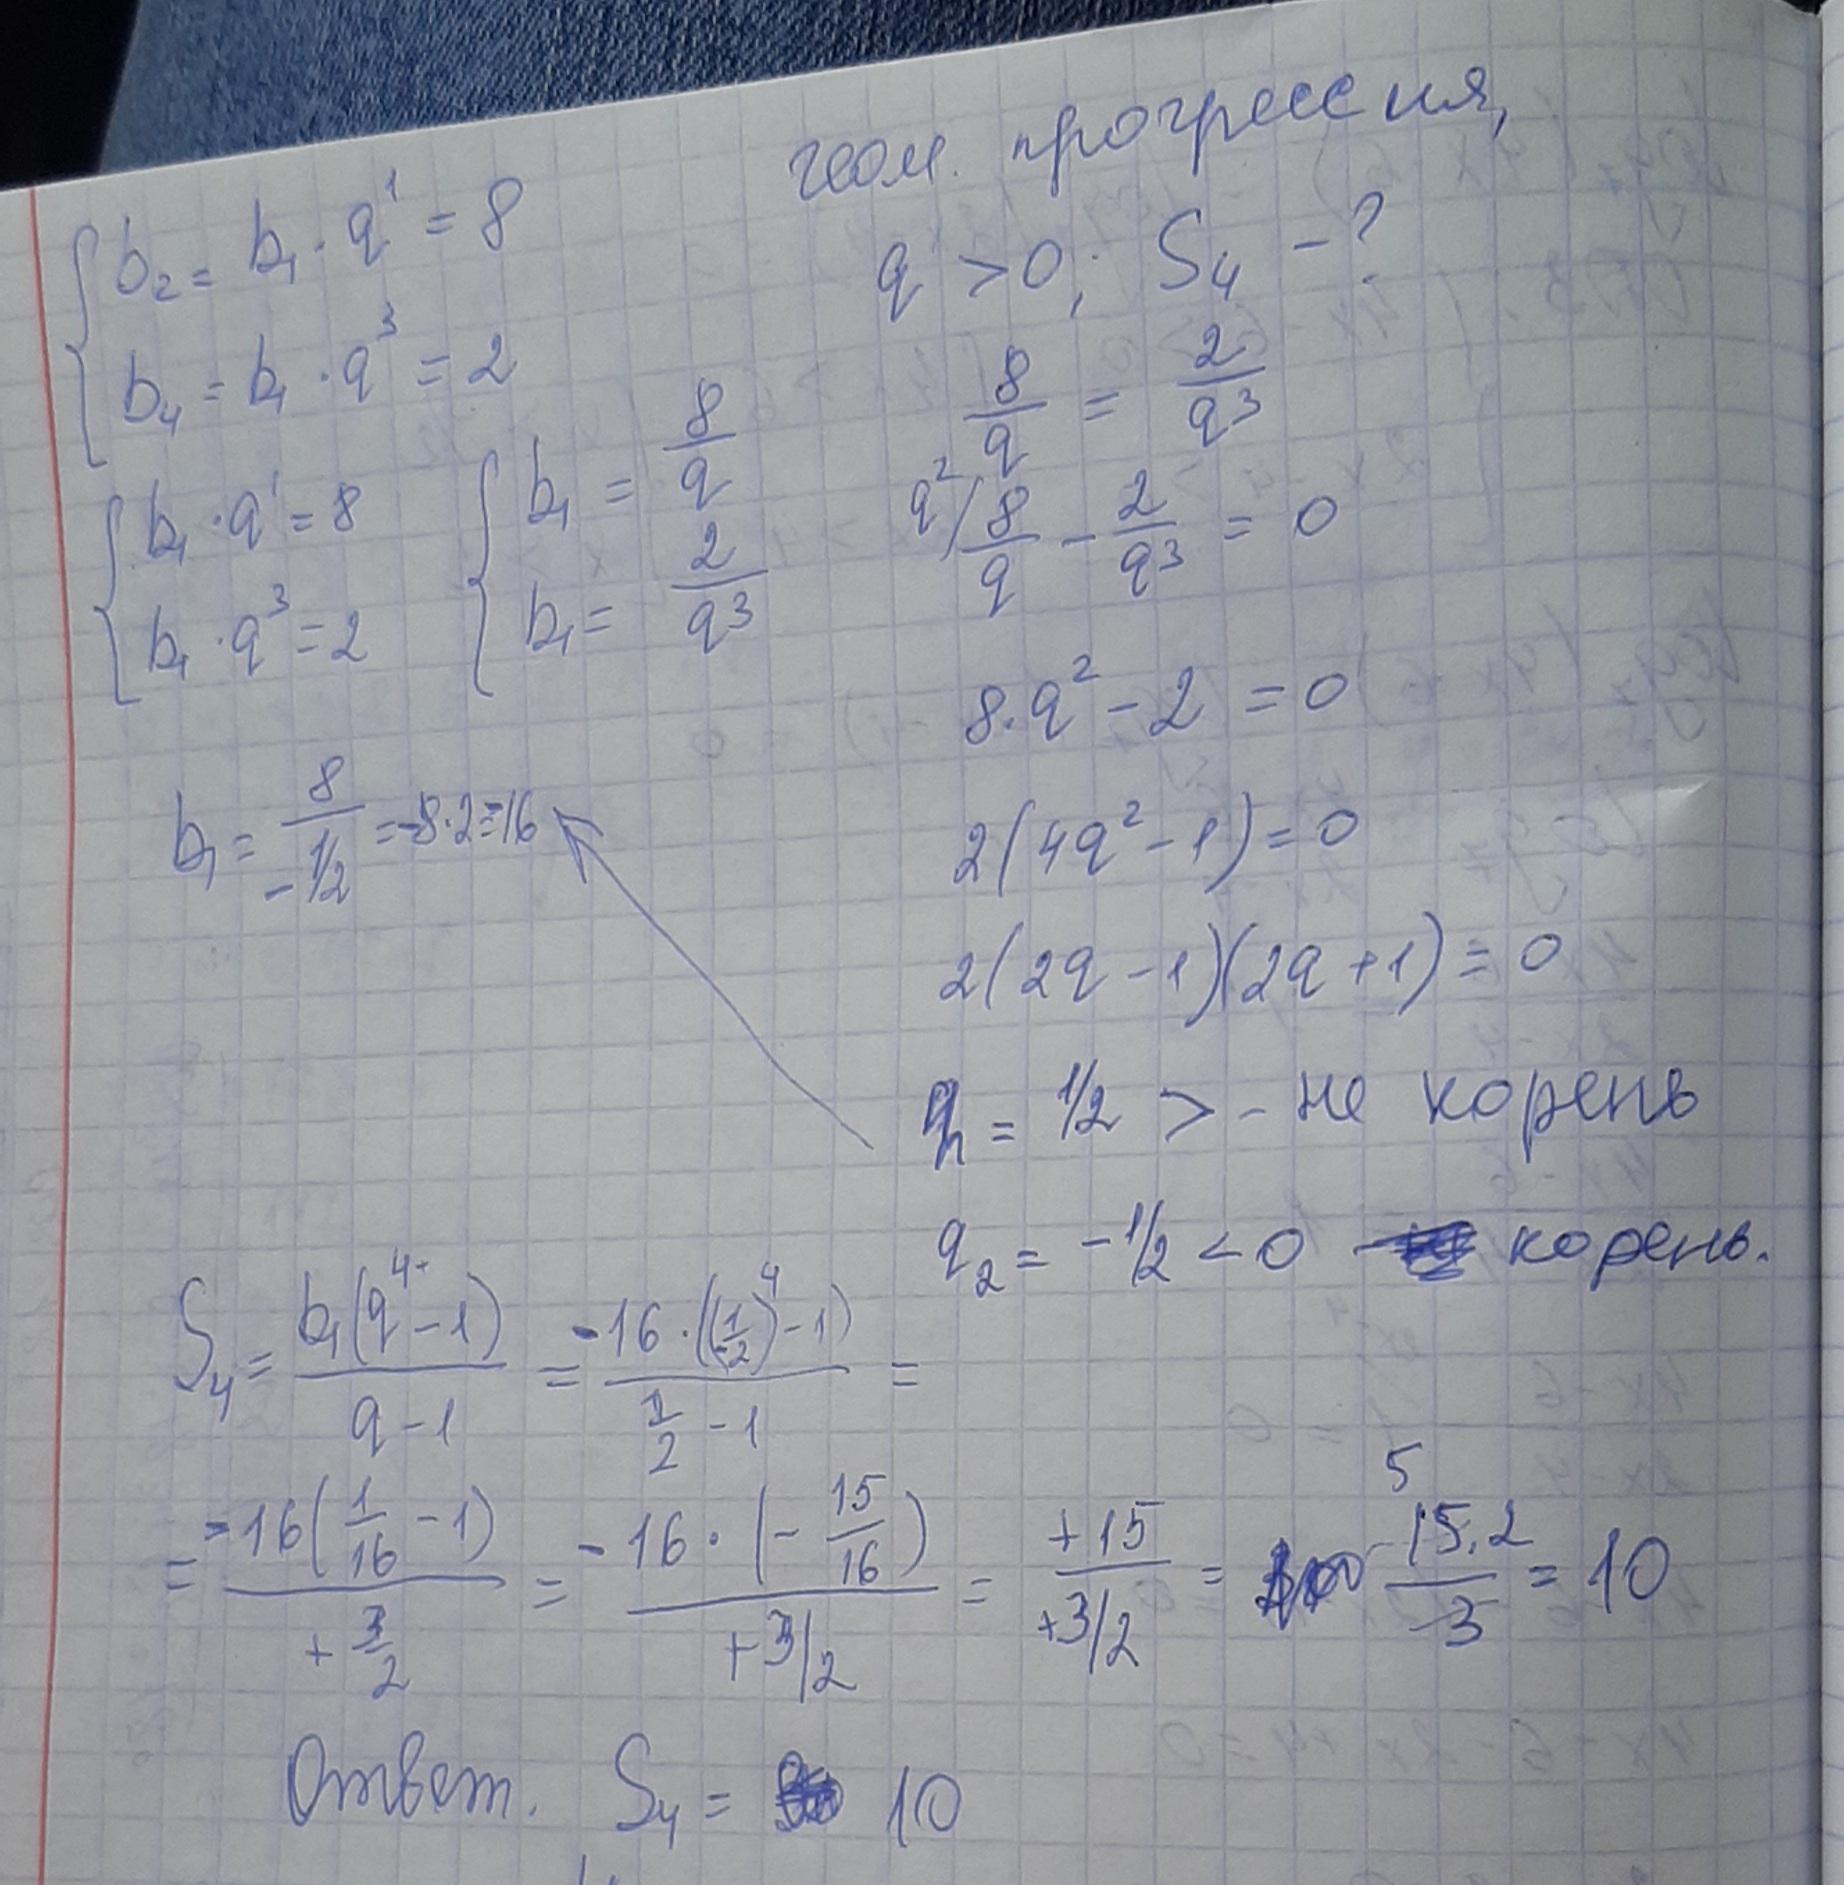 геом. прогрессия,
q > 0; S₄ - ?
{ b₂ = b₁ · q¹ = 8
b₄ = b₁ · q³ = 2
{ b₁ · q¹ = 8
b₁ · q³ = 2
{ b₁ = 8/q
b₁ = 2/q³
8/q = 2/q³
q²/ 8/q - 2/q³ = 0
8 · q² - 2 = 0
2(4q² - 1) = 0
2(2q - 1)(2q + 1) = 0
q₁ = 1/2 > - не корень
q₂ = -1/2 < 0 корень.
b₁ = 8/(-1/2) = -8·2 = -16
S₄ = b₁(q⁴ - 1)/(q - 1) = -16 · ((1/-2)⁴ - 1)/(1/2 - 1) =
= -16(1/16 - 1)/(+3/2) = -16 · (-15/16)/(+3/2) = +15/(+3/2) = 5 -15·2/-3 = 10
Ответ. S₄ = 10